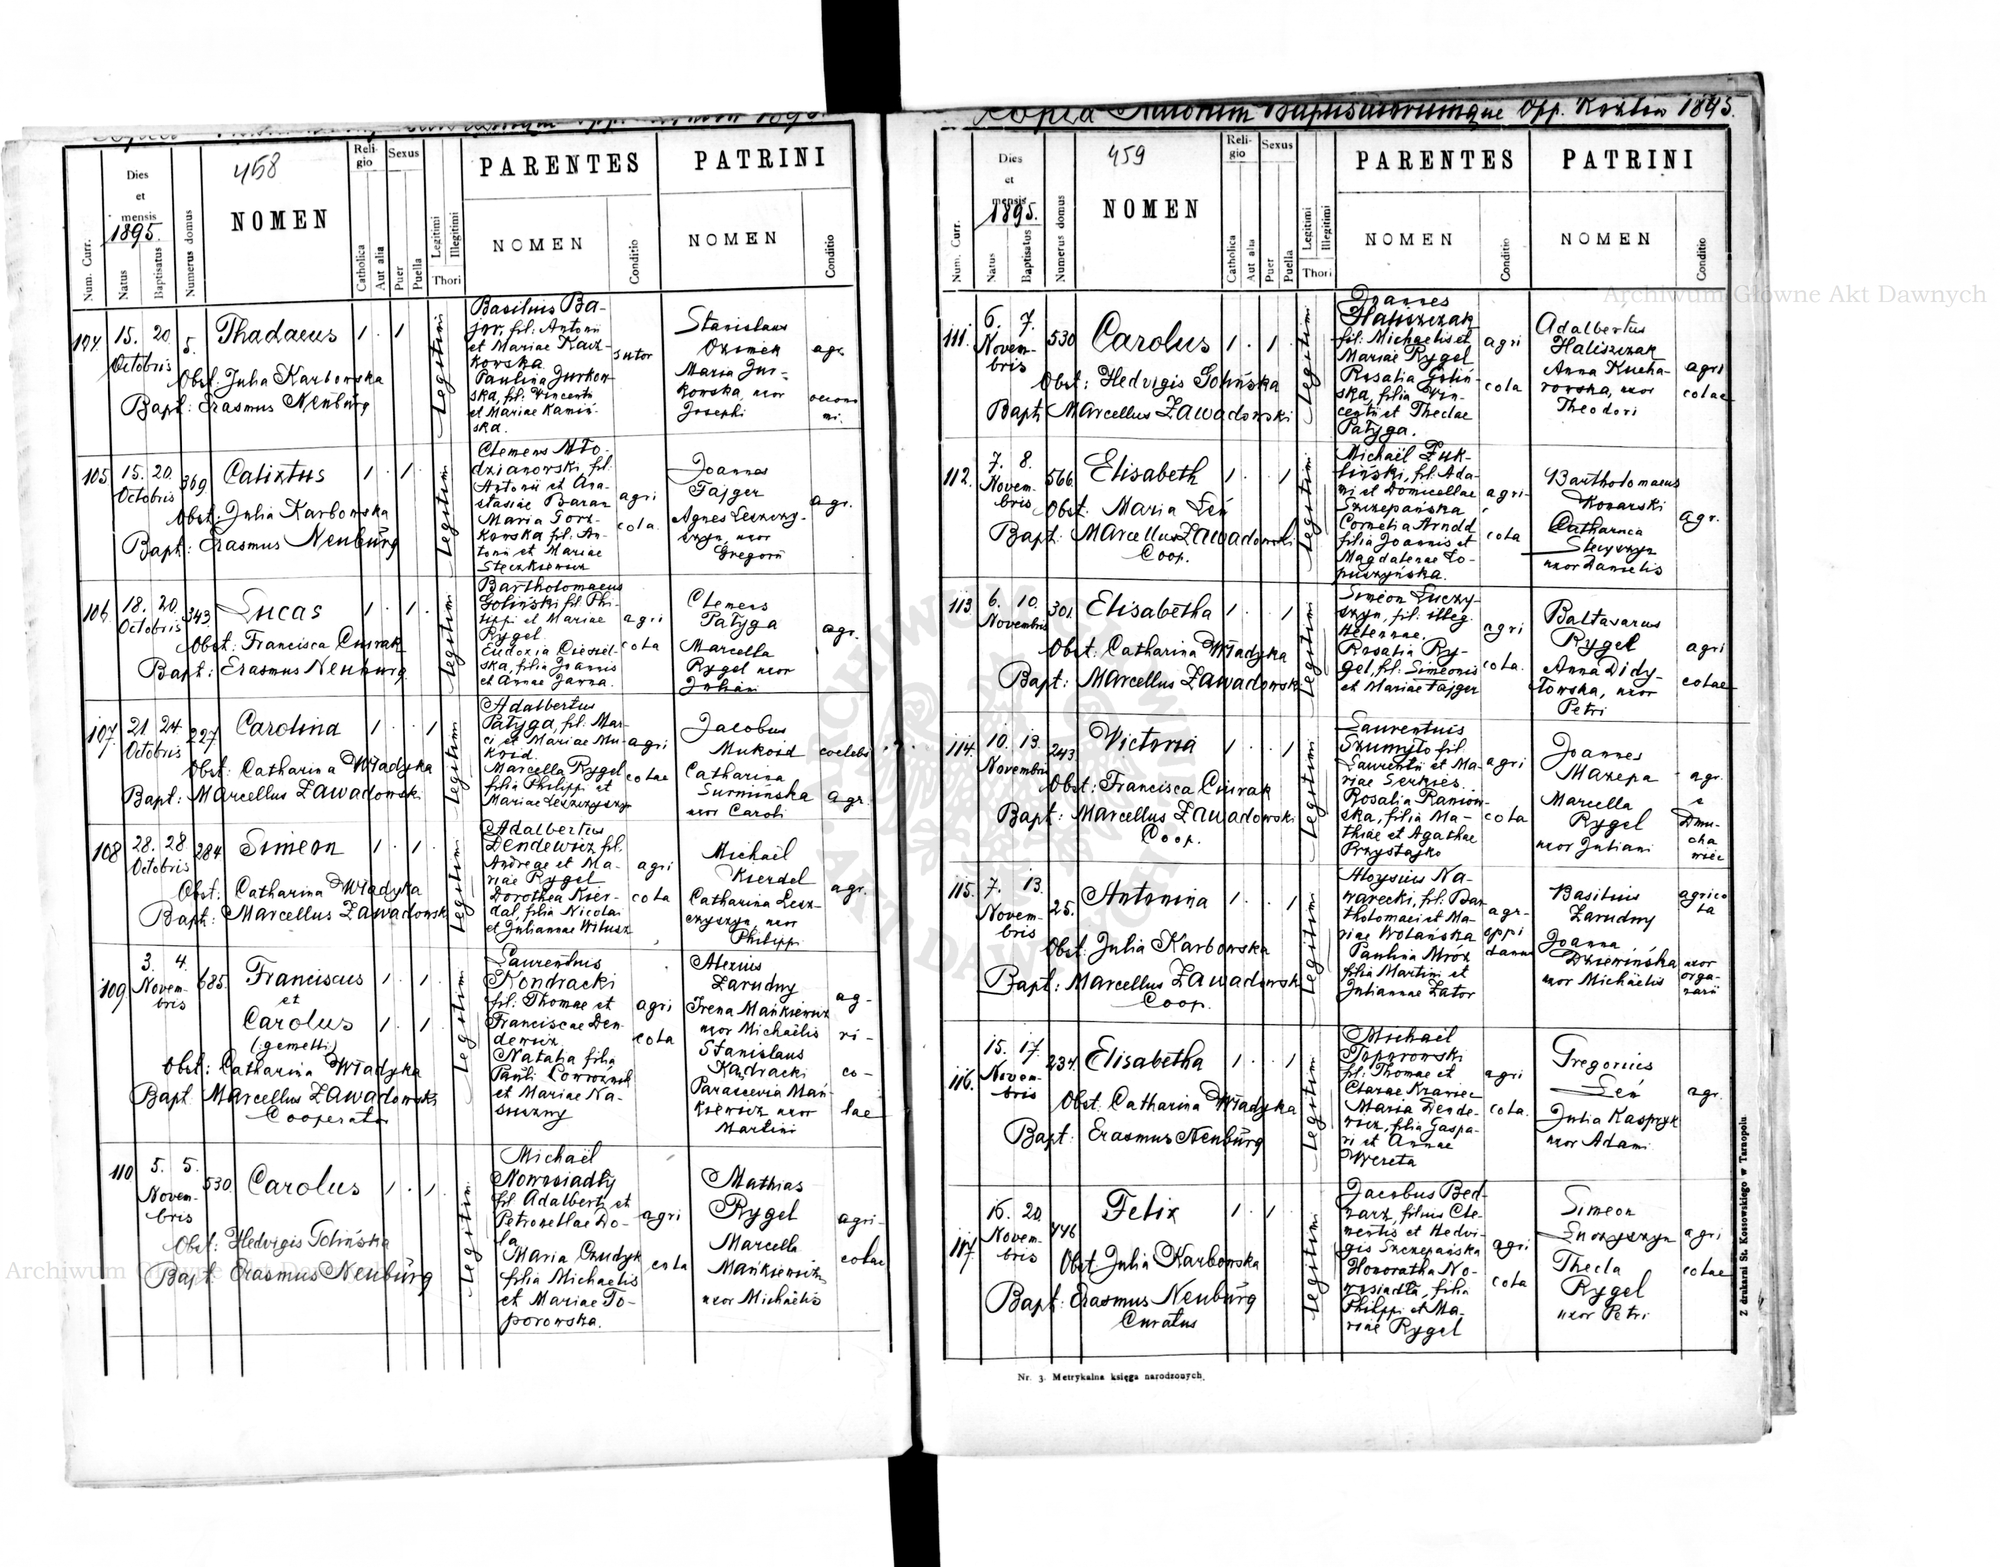 Copia Natorum Baptisatorumque Opp. Kozłow 1895.
458
Num. Curr.
Dies et mensis
1895.
Natus
Baptisatus
Numerus domus
NOMEN
Religio
Catholica
Aut alia
Sexus
Puer
Puella
Legitimi
Illegitimi
Thori
PARENTES
NOMEN
Conditio
PATRINI
NOMEN
Conditio
104. 15. 20. Octobris 5. Thadaeus 1 . 1 .
Obst. Julia Karbowska
Bapt: Erasmus Neubürg
Legitimi
Basilius Ba-
jor, fil: Antonii
et Mariae Kacz-
kowska.
Paulina Jurkow-
ska, fil: Vincentii
et Mariae Kamiń-
ska.
sutor
Stanislaus
Ozimek
Maria Jur-
kowska, uxor
Josephi
agr.
oecono
mi.
105 15. 20. Octobris 369. Calixtus 1 . 1 .
Obst. Julia Karbowska
Bapt: Erasmus Neubürg
Legitimi
Clemens Mło-
dzianowski, fil.
Antonii et Ana-
stasiae Baran
Maria Gorz-
kowska fil. An-
tonii et Mariae
Steczkiewicz
agri
cola.
Joannes
Tajger
Agnes Leszczy-
szyn, uxor
Gregorii
agr.
106 18. 20. Octobris 343. Lucas 1 . 1 .
Obst: Francisca Ciurak
Bapt: Erasmus Neuburg.
Legitimi
Bartholomaeus
Goliński fil. Phi-
lippi et Mariae
Rygel.
Eudoxia Ciesiel-
ska, filia Joannis
et Annae Jarna.
agri
cola
Clemens
Patyga
Marcella
Rygel uxor
Juliani
agr.
107. 21 24 Octobris 227 Carolina 1 . . 1
Obst: Catharina Władyka
Bapt: Marcellus Zawadowski
Legitimi
Adalbertus
Patyga, fil. Mar-
ci et Mariae Mu-
koid.
Marcella Rygel
filia Philippi et
Mariae Leszczyszyn
agri
colae
Jacobus
Mukoid
Catharina
Surmińska
uxor Caroli
coelebs
agr.
108 28. 28 Octobris 284 Simeon 1 . 1 .
Obst. Catharina Władyka
Bapt: Marcellus Zawadowski
Legitimi
Adalbertus
Dendewicz fil.
Andreae et Ma-
riae Rygel
Dorothea Kier-
dal, filia Nicolai
et Juliannae Witusz
agri
cola
Michaël
Kierdel
Catharina Lesz-
czyszyn, uxor
Philippi
agr.
109 3. 4. Novem-
bris 685. Franciscus 1 . 1 .
et
Carolus 1 . 1 .
(gemelli)
Obst: Catharina Władyka
Bapt Marcellus Zawadowski
Cooperator
Legitimi
Laurentius
Kondracki
fil: Thomae et
Franciscae Den-
dewicz.
Natalia filia
Pauli
et Mariae Na-
suszny
agri
cola
Alexius
Zarudny
Irena Mańkiewicz
uxor Michaëlis
Stanislaus
Kondracki
Parascevia Mań-
kiewicz uxor
Martini
ag-
ri-
co-
lae
110 5. 5. Novem-
bris 530. Carolus 1 . 1 .
Obst: Hedvigis Golińska
Bapt Erasmus Neubürg
Legitimi
Michaël
Nowosiadły
fil Adalberti et
Petronellae Ło-
ła
Maria Czudyk
filia Michaelis
et Mariae To-
porowska.
agri
cola
Mathias
Rygel
Marcella
Mańkiewicz
uxor Michaëlis
agri-
colae
Copia Natorum Baptisatorumque Opp. Kozłow 1895.
459
Num. Curr.
Dies et mensis
1895.
Natus
Baptisatus
Numerus domus
NOMEN
Religio
Catholica
Aut alia
Sexus
Puer
Puella
Legitimi
Illegitimi
Thori
PARENTES
NOMEN
Conditio
PATRINI
NOMEN
Conditio
111. 6. 7. Novem-
bris 530 Carolus 1 . 1 .
Obst: Hedvigis Golińska
Bapt Marcellus Zawadowski
Legitimi
Joannes
Haliszczak
fil. Michaelis et
Mariae Rygel
Rosalia Goliń-
ska, filia Vin-
centii et Theclae
Patyga.
agri
cola
Adalbertus
Haliszczak
Anna Kucha-
rowska, uxor
Theodori
agri
colae
112. 7. 8. Novem-
bris 566. Elisabeth 1 . . 1
Obst. Maria Leń
Bapt: Marcellus Zawadowski
Coop.
Legitimi
Michaël Żuk-
liński, fil. Ada-
mi et Domicellae
Szczepańska
Cornelia Arnold
filia Joannis et
Magdalenae Ło-
puszyńska.
agri-
cola
Bartholomaeus
Kosarski
Catharina
Stecyszyn
uxor Danielis
agr.
113 6. 10. Novembris 301. Elisabetha 1 . . 1
Obst: Catharina Władyka
Bapt: Marcellus Zawadowski
Legitimi
Simeon Luczy-
szyn, fil. illeg.
Helennae.
Rosalia Ry-
gel, fil: Simeonis
et Mariae Tajger
agri
cola.
Baltasarus
Rygel
Anna Didy-
łowska, uxor
Petri
agri
colae
114. 10. 13. Novembris 243. Victoria 1 . . 1
Obst: Francisca Ciurak
Bapt: Marcellus Zawadowski
Coop.
Legitimi
Laurentius
Szumyło fil.
Laurentii et Ma-
riae Serkies.
Rosalia Raniow-
ska, filia Ma-
thiae et Agathae
Przystajko
agri
cola
Joannes
Mazepa
Marcella
Rygel
uxor Juliani
agr.
Dmu-
cha
wiec
115. 7. 13. Novem-
bris 25. Antonina 1 . . 1
Obst: Julia Karbowska
Bapt: Marcellus Zawadowski
Coop.
Legitimi
Aloysius Na-
warecki, fil: Bar-
tholomaei et Ma-
riae Wolańska
Paulina Mróz
filia Martini et
Juliannae Zator
agr-
oppi
danus
Basilius
Zarudny
Joanna
Dziewińska
uxor Michaëlis
agrico
la
uxor
orga-
narii
116. 15. 17. Novem-
bris 234. Elisabetha 1 . . 1
Obst. Catharina Władyka
Bapt: Erasmus Neubürg
Legitimi
Michaël
Toporowski
fil: Thomae et
Clarae Krawiec
Maria Dende-
wicz, filia Gaspa-
ri et Annae
Wereta
agri
cola.
Gregorius
Leń
Julia Kasprzyk
uxor Adami
agr.
117. 16. 20. Novem-
bris 446 Felix 1 . 1 .
Obst Julia Karbowska
Bapt: Erasmus Neubürg
Curatus
Legitimi
Jacobus Bed-
narz, filius Cle-
mentis et Hedvi-
gis Szczepańska
Honoratha No-
wosiadła, filia
Philippi et Ma-
riae Rygel
agri
cola
Simeon
Luczyszyn
Thecla
Rygel
uxor Petri
agri
colae
Nr. 3. Metrykalna księga narodzonych.
Z drukarni St. Kossowskiego w Tarnopolu
Archiwum Główne Akt Dawnych
Archiwum Główne Akt Dawnych
ARCHIWUM GŁÓWNE AKT DAWNYCH